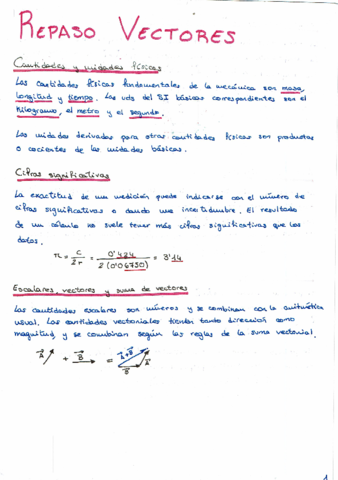 REPASO VECTORES
Cantidades y unidades físicas
Las cantidades físicas fundamentales de la mecánica son masa,
longitud y tiempo. Las uds del SI básicas correspondientes son el
kilogramo, el metro y el segundo.
Las unidades derivadas para otras cantidades físicas son productos
o cocientes de las unidades básicas.
Cifras significativas
La exactitud de un medición puede indicarse con el número de
cifras significativas o dando una incertidumbre. El resultado
de un cálculo no suele tener más cifras significativas que los
datos.
π = C / 2r = 0'424 / 2(0'06750) = 3'14
Escalares, vectores y suma de vectores
Las cantidades escalares son números y se combinan con la aritmética
usual. Las cantidades vectoriales tienen tanto dirección como
magnitud y se combinan según las reglas de la suma vectorial.
A + B = A+B A B
1